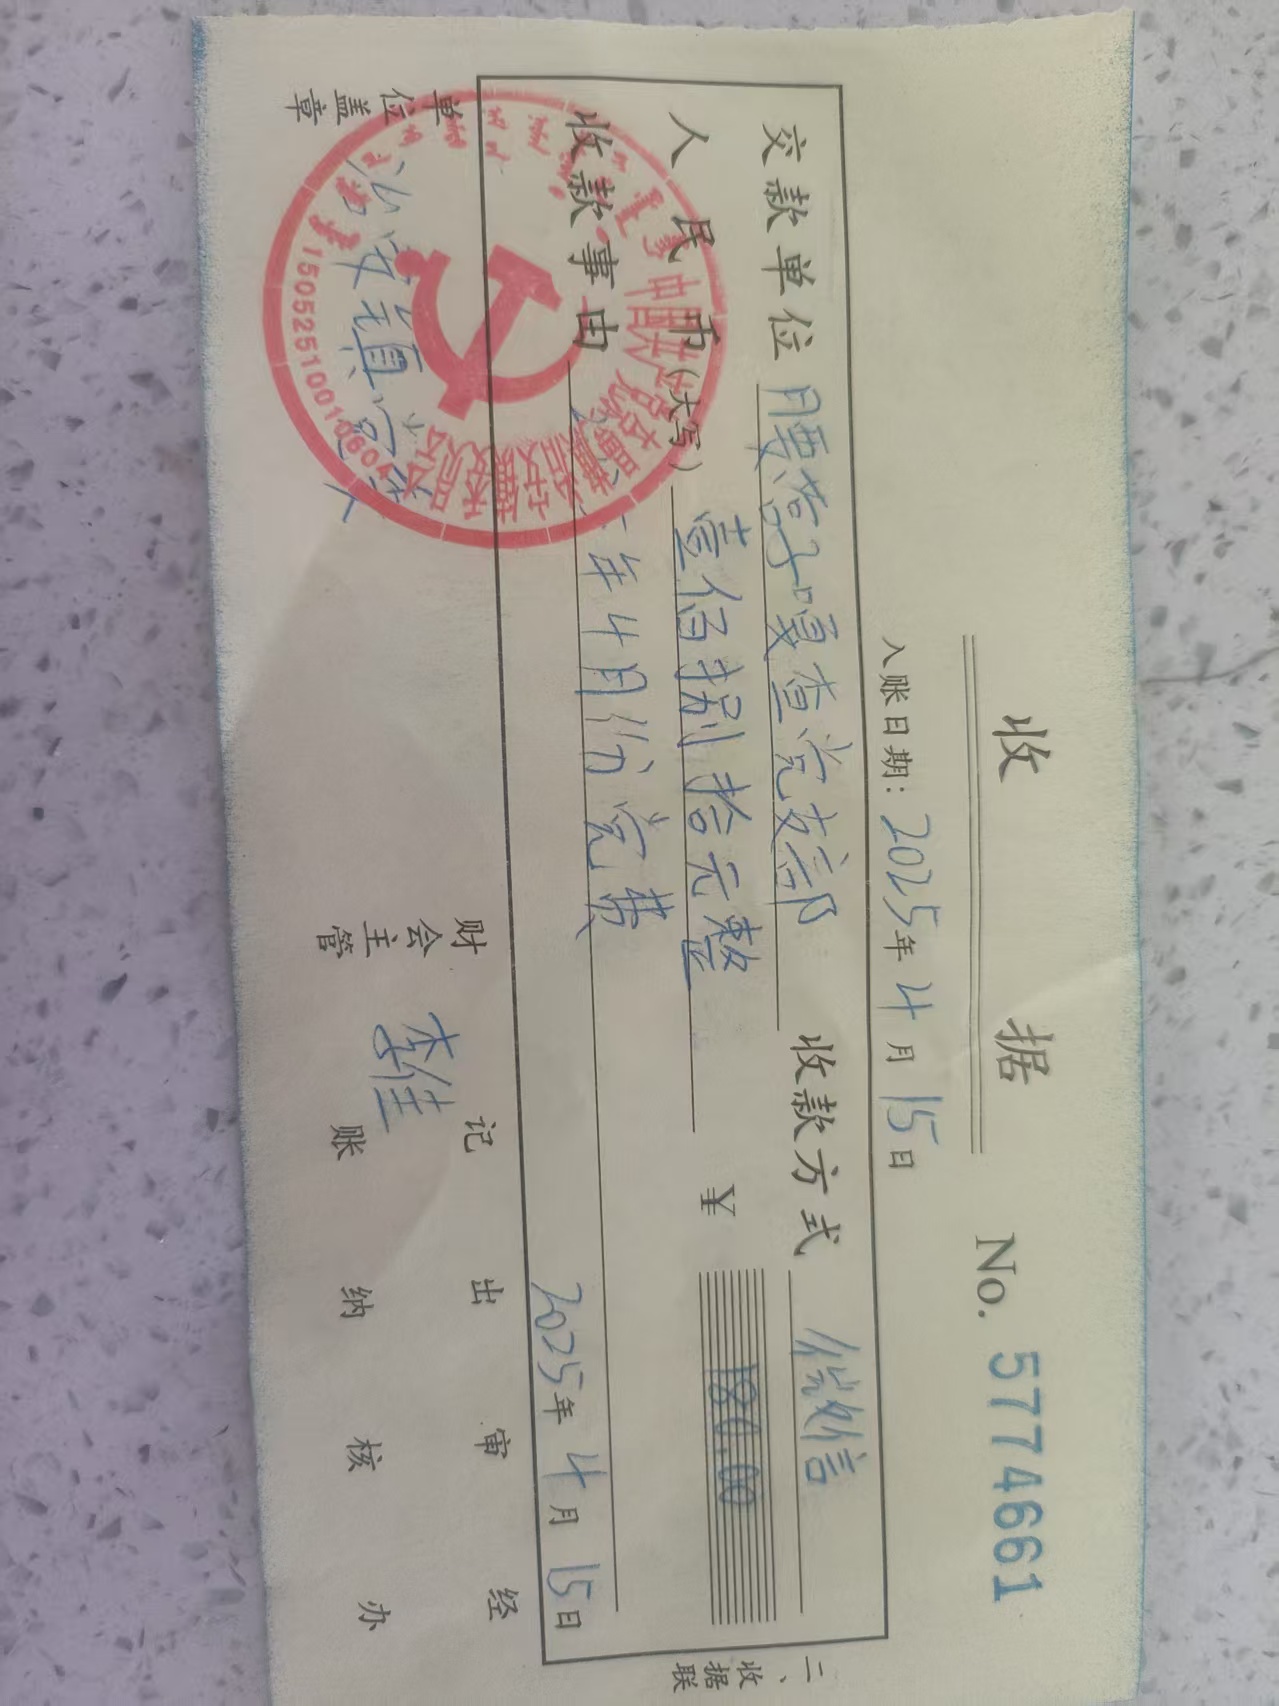 收 据
No. 5774661
入账日期: 2025年4月15日
交款单位 腰营子嘎查党支部 收款方式 微信
人民币(大写) 壹佰捌拾元整 ¥ 180.00
收款事由 年4月份党费
2025年4月15日
二、收据联
单位盖章
财会主管 李佳 记账 出纳 审核 经办
治安镇党
1505251001060